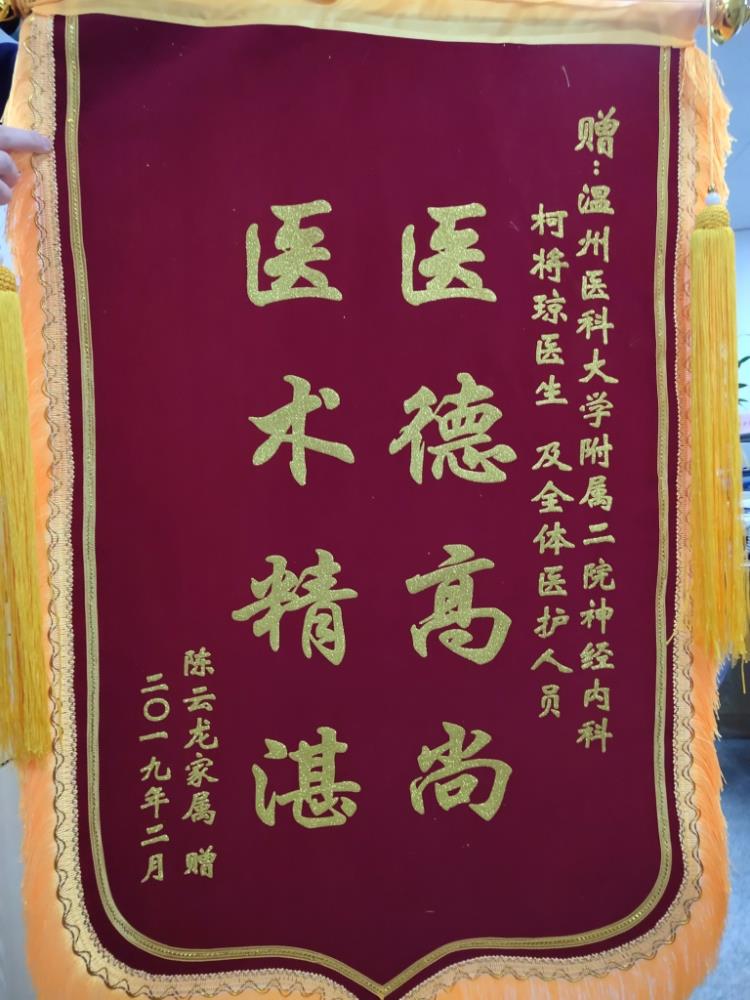 赠：温州医科大学附属二院神经内科
柯将琼医生 及全体医护人员
医德高尚
医术精湛
陈云龙家属 赠
二〇一九年二月